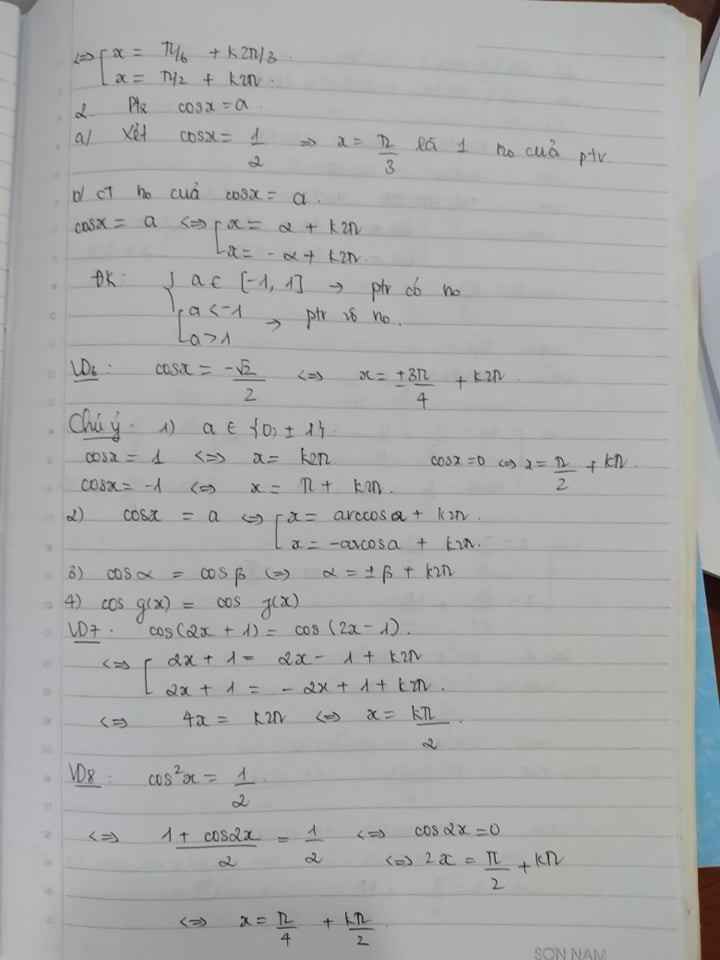 ⇔ [ x = π/6 + k2π/3
x = π/2 + k2π.
2. Ptr cosx = a.
a/ Xét cosx = 1/2 ⇒ x = π/3 là 1 no cuả ptr
b/ CT no cuả cosx = a.
cosx = a ⇔ [ x = α + k2π
x = -α + k2π.
ĐK: { a ∈ [-1, 1] → ptr có no
[ a < -1
a > 1 → ptr vô no.
VD6: cosx = -√2/2 ⇔ x = ±3π/4 + k2π
Chú ý. 1) a ∈ {0, ± 1}
cosx = 1 ⇔ x = k2π cosx = 0 ⇔ x = π/2 + kπ.
cosx = -1 ⇔ x = π + k2π.
2) cosx = a ⇔ [ x = arccosa + k2π.
x = -arcosa + k2π.
3) cosα = cosβ ⇔ α = ±β + k2π
4) cos g(x) = cos g(x)
VD7. cos(2x + 1) = cos(2x - 1).
⇔ [ 2x + 1 = 2x - 1 + k2π
2x + 1 = -2x + 1 + k2π.
⇔ 4x = k2π ⇔ x = kπ/2.
VD8: cos²x = 1/2
⇔ (1 + cos2x)/2 = 1/2 ⇔ cos2x = 0
⇔ 2x = π/2 + kπ
⇔ x = π/4 + kπ/2
SON NAM